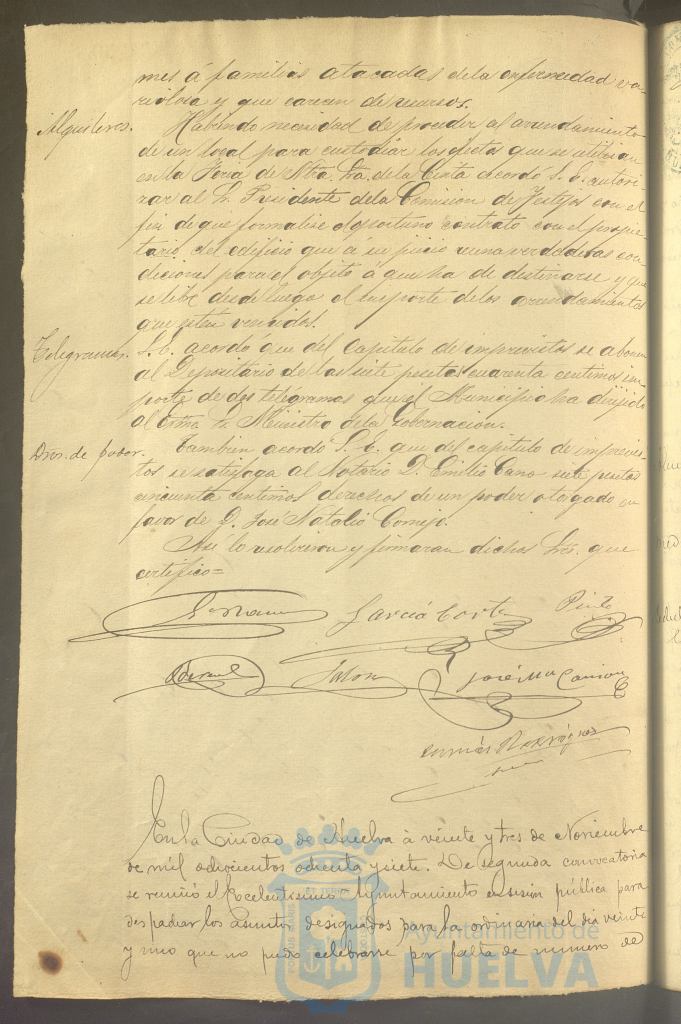 mes á familias atacadas de la enfermedad va-
riolosa y que carecen de recursos.
Alquileres.
Habiendo necesidad de proceder al arrendamiento
de un local para custodiar los efectos que se utilizan
en la Feria de Ntra. Sra. de la Cinta acordó S. E. autori-
zar al Sr. Presidente de la Comision de Festejos con el
fin de que formalise el oportuno contrato con el propie-
tario del edificio que á su juicio reuna verdaderas con
diciones para el objeto á que ha de destinarse y que
se libe desde luego el importe de los arrendamientos
que esten vencidos.
Telegramas.
S. E. acordó que del Capitulo de imprevistos se abonen
al Depositário de las siete pesetas cuarenta centimos im-
porte de dos telégramas que el Municipio ha dirijido
al Sr. Ministro de la Gobernacion.
Dros. de poder.
Tambien acordó S. E. que del capitulo de imprevis-
tos se satisfaga al Notario D. Emilio Cano siete pesetas
cincuenta centimos derechos de un poder otorgado en
favor de D. José Natalio Cornejo.
Asi lo resolvieron y firmaran dichos Sres. que
certifico=
Garcia Cortes Pinto
José Ma
Rodríguez
En la Ciudad de Huelva à veinte y tres de Noviembre
de mil ochocientos ochenta y siete. De segunda convocatoria
se reunió el Excelentisimo Ayuntamiento en sesión pública para
despachar los asuntos designados para la ordinaria del dia veinte
y uno que no pudo celebrarse por falta de numero de
Ayuntamiento de
HUELVA